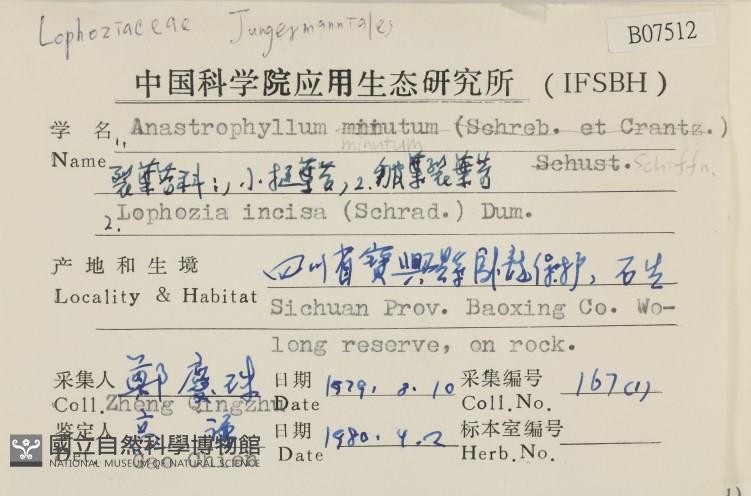 Lophoziaceae Jungermanniales
B07512
中国科学院应用生态研究所 (IFSBH)
学 名 1. Anastrophyllum minutum (Schreb. et Crantz.)
minutum
Name Schust. Schiffn.
裂葉苔科:1, 小挺葉苔, 2. 皱葉裂葉苔
2. Lophozia incisa (Schrad.) Dum.
产地和生境 四川省寶興縣卧龍保护, 石生
Locality & Habitat Sichuan Prov. Baoxing Co. Wo-
long reserve, on rock.
采集人 鄭慶珠 日期 1979. 8. 10 采集编号 167(1)
Coll. Zheng Qingzhu Date Coll.No.
鉴定人 高谦 日期 1980. 4. 2 标本室编号
Det. Gao Chien Date Herb.No.
國立自然科學博物館
NATIONAL MUSEUM OF NATURAL SCIENCE